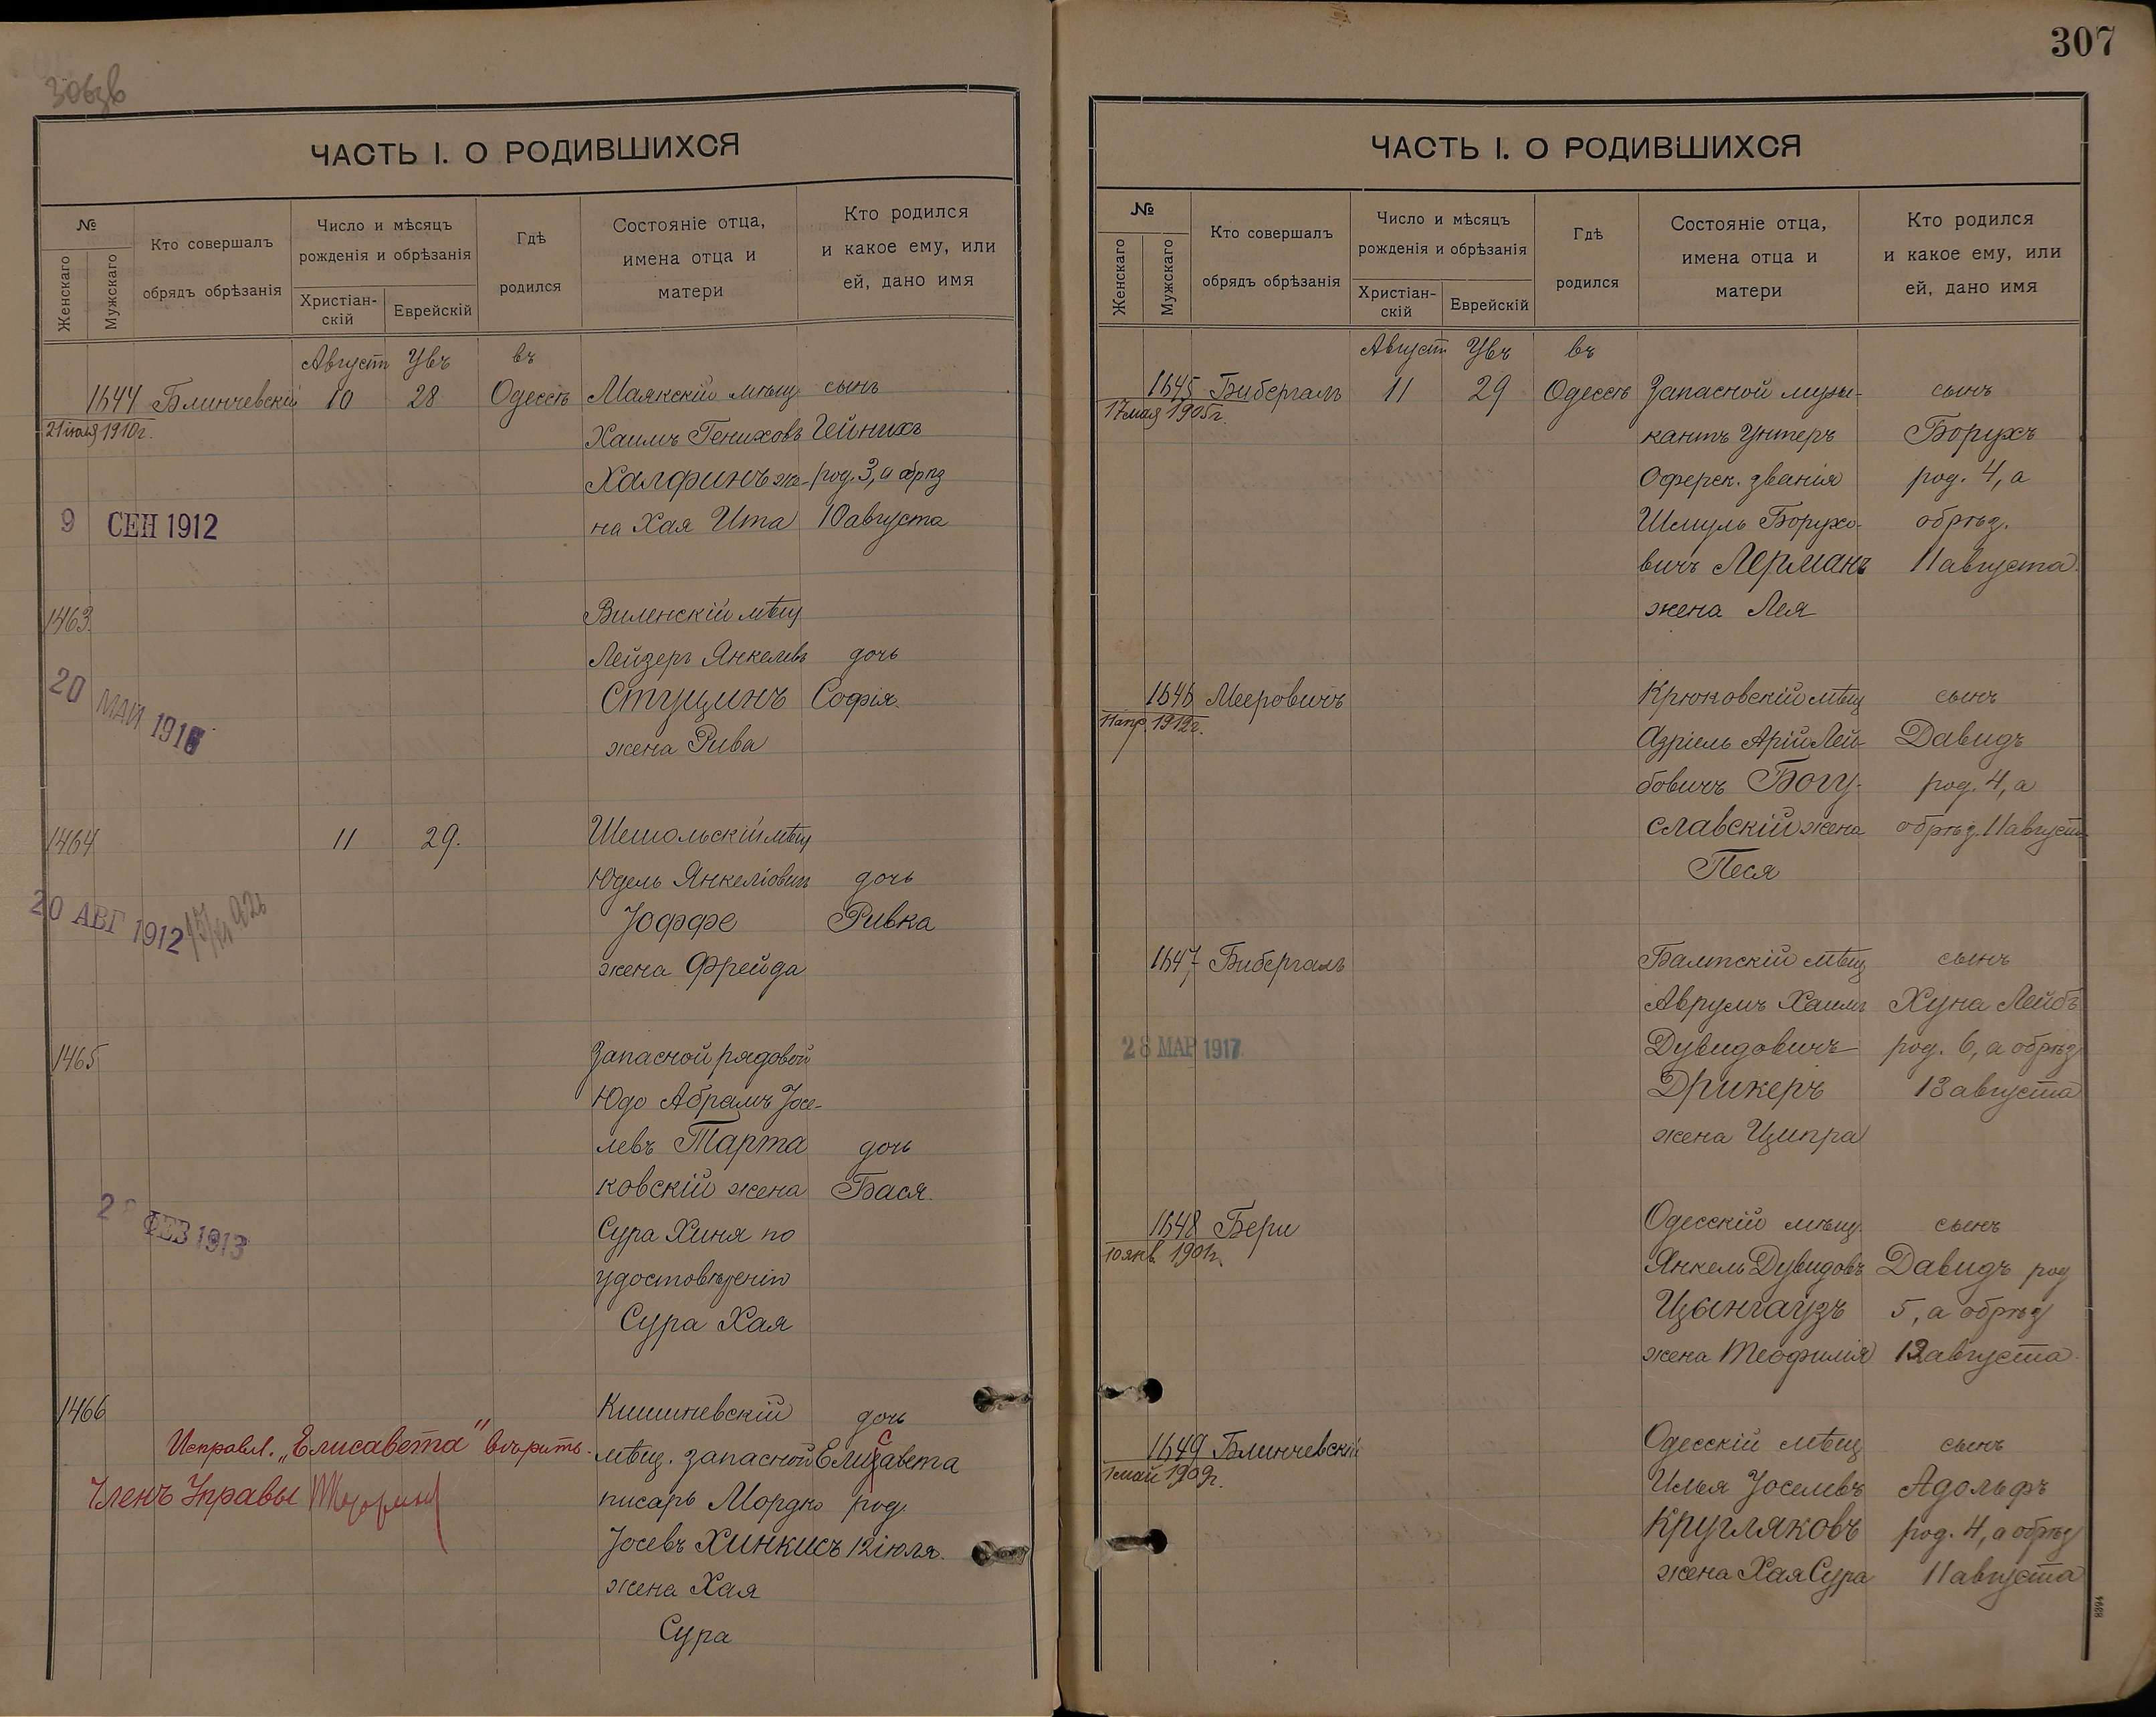 306зв
ЧАСТЬ I. О РОДИВШИХСЯ
№
Женскаго
Мужскаго
Кто совершалъ
обрядъ обрѣзанія
Число и мѣсяцъ
рожденія и обрѣзанія
Христіан-
скій
Еврейскій
Гдѣ
родился
Состояніе отца,
имена отца и
матери
Кто родился
и какое ему, или
ей, дано имя
Август Увъ въ
1644 Блинчевскій 10 28 Одессѣ Маякскій мѣщ. сынъ
21 іюля 1910г.
Хаимъ Гениховъ Гейнихъ
Халфинъ же- род. 3, а обрѣз
на Хая Ита 10 августа
9 СЕН 1912
1463. Виленскій мѣщ
Лейзеръ Янкелевъ дочь
Стущинъ Софія.
жена Рива
20 МАЙ 1916
1464 11 29. Шешольскій мѣщ
Юдель Янкеліовичъ дочь
Іоффе Ривка
жена Фрейда
20 АВГ 1912
1465 Запасной рядовой
Юдо Абрамъ Іосе-
левъ Тарта дочь
ковскій жена Бася.
Сура Хиня по
удостовѣренію
Сура Хая
28 ФЕВ 1913
1466 Кишиневскій дочь
Исправл. „Елисавета" вѣрить.
мѣщ. запасной Елизавета
с
Членъ Управы
писарь Мордко род.
Іосевъ Хинкисъ 12 іюля.
жена Хая
Сура
307
ЧАСТЬ I. О РОДИВШИХСЯ
№
Женскаго
Мужскаго
Кто совершалъ
обрядъ обрѣзанія
Число и мѣсяцъ
рожденія и обрѣзанія
Христіан-
скій
Еврейскій
Гдѣ
родился
Состояніе отца,
имена отца и
матери
Кто родился
и какое ему, или
ей, дано имя
Август Увъ въ
1645 Бибергалъ 11 29 Одессѣ Запасной музы- сынъ
17 мая 1905г.
кантъ Унтеръ Борухъ
Оферск. званія род. 4, а
Шмуль Борухо- обрѣз.
вичъ Лерманъ 11 августа.
жена Лея
1646 Мееровичъ Крюковскій мѣщ сынъ
11 апр. 1912г.
Азріель Арій Лей- Давидъ
бовичъ Богу- род. 4, а
славскій жена обрѣз. 11 август
Песя
1647 Бибергалъ Балтскій мѣщ сынъ
Аврумъ Хаимъ Хуна Лейбъ
28 МАР 1917
Дувидовичъ род. 6, а обрѣз
Дрикеръ 13 августа
жена Ципра
1648 Бери Одесскій мѣщ. сынъ
10 янв. 1901г.
Янкель Дувидовъ Давидъ род
Цынгаузъ 5, а обрѣз
жена Теофилія 12 августа.
1649 Блинчевскій Одесскій мѣщ сынъ
1 май 1909г.
Илья Іоселевъ Адольфъ
Кругляковъ род. 4, а обрѣз
жена Хая Сура 11 августа